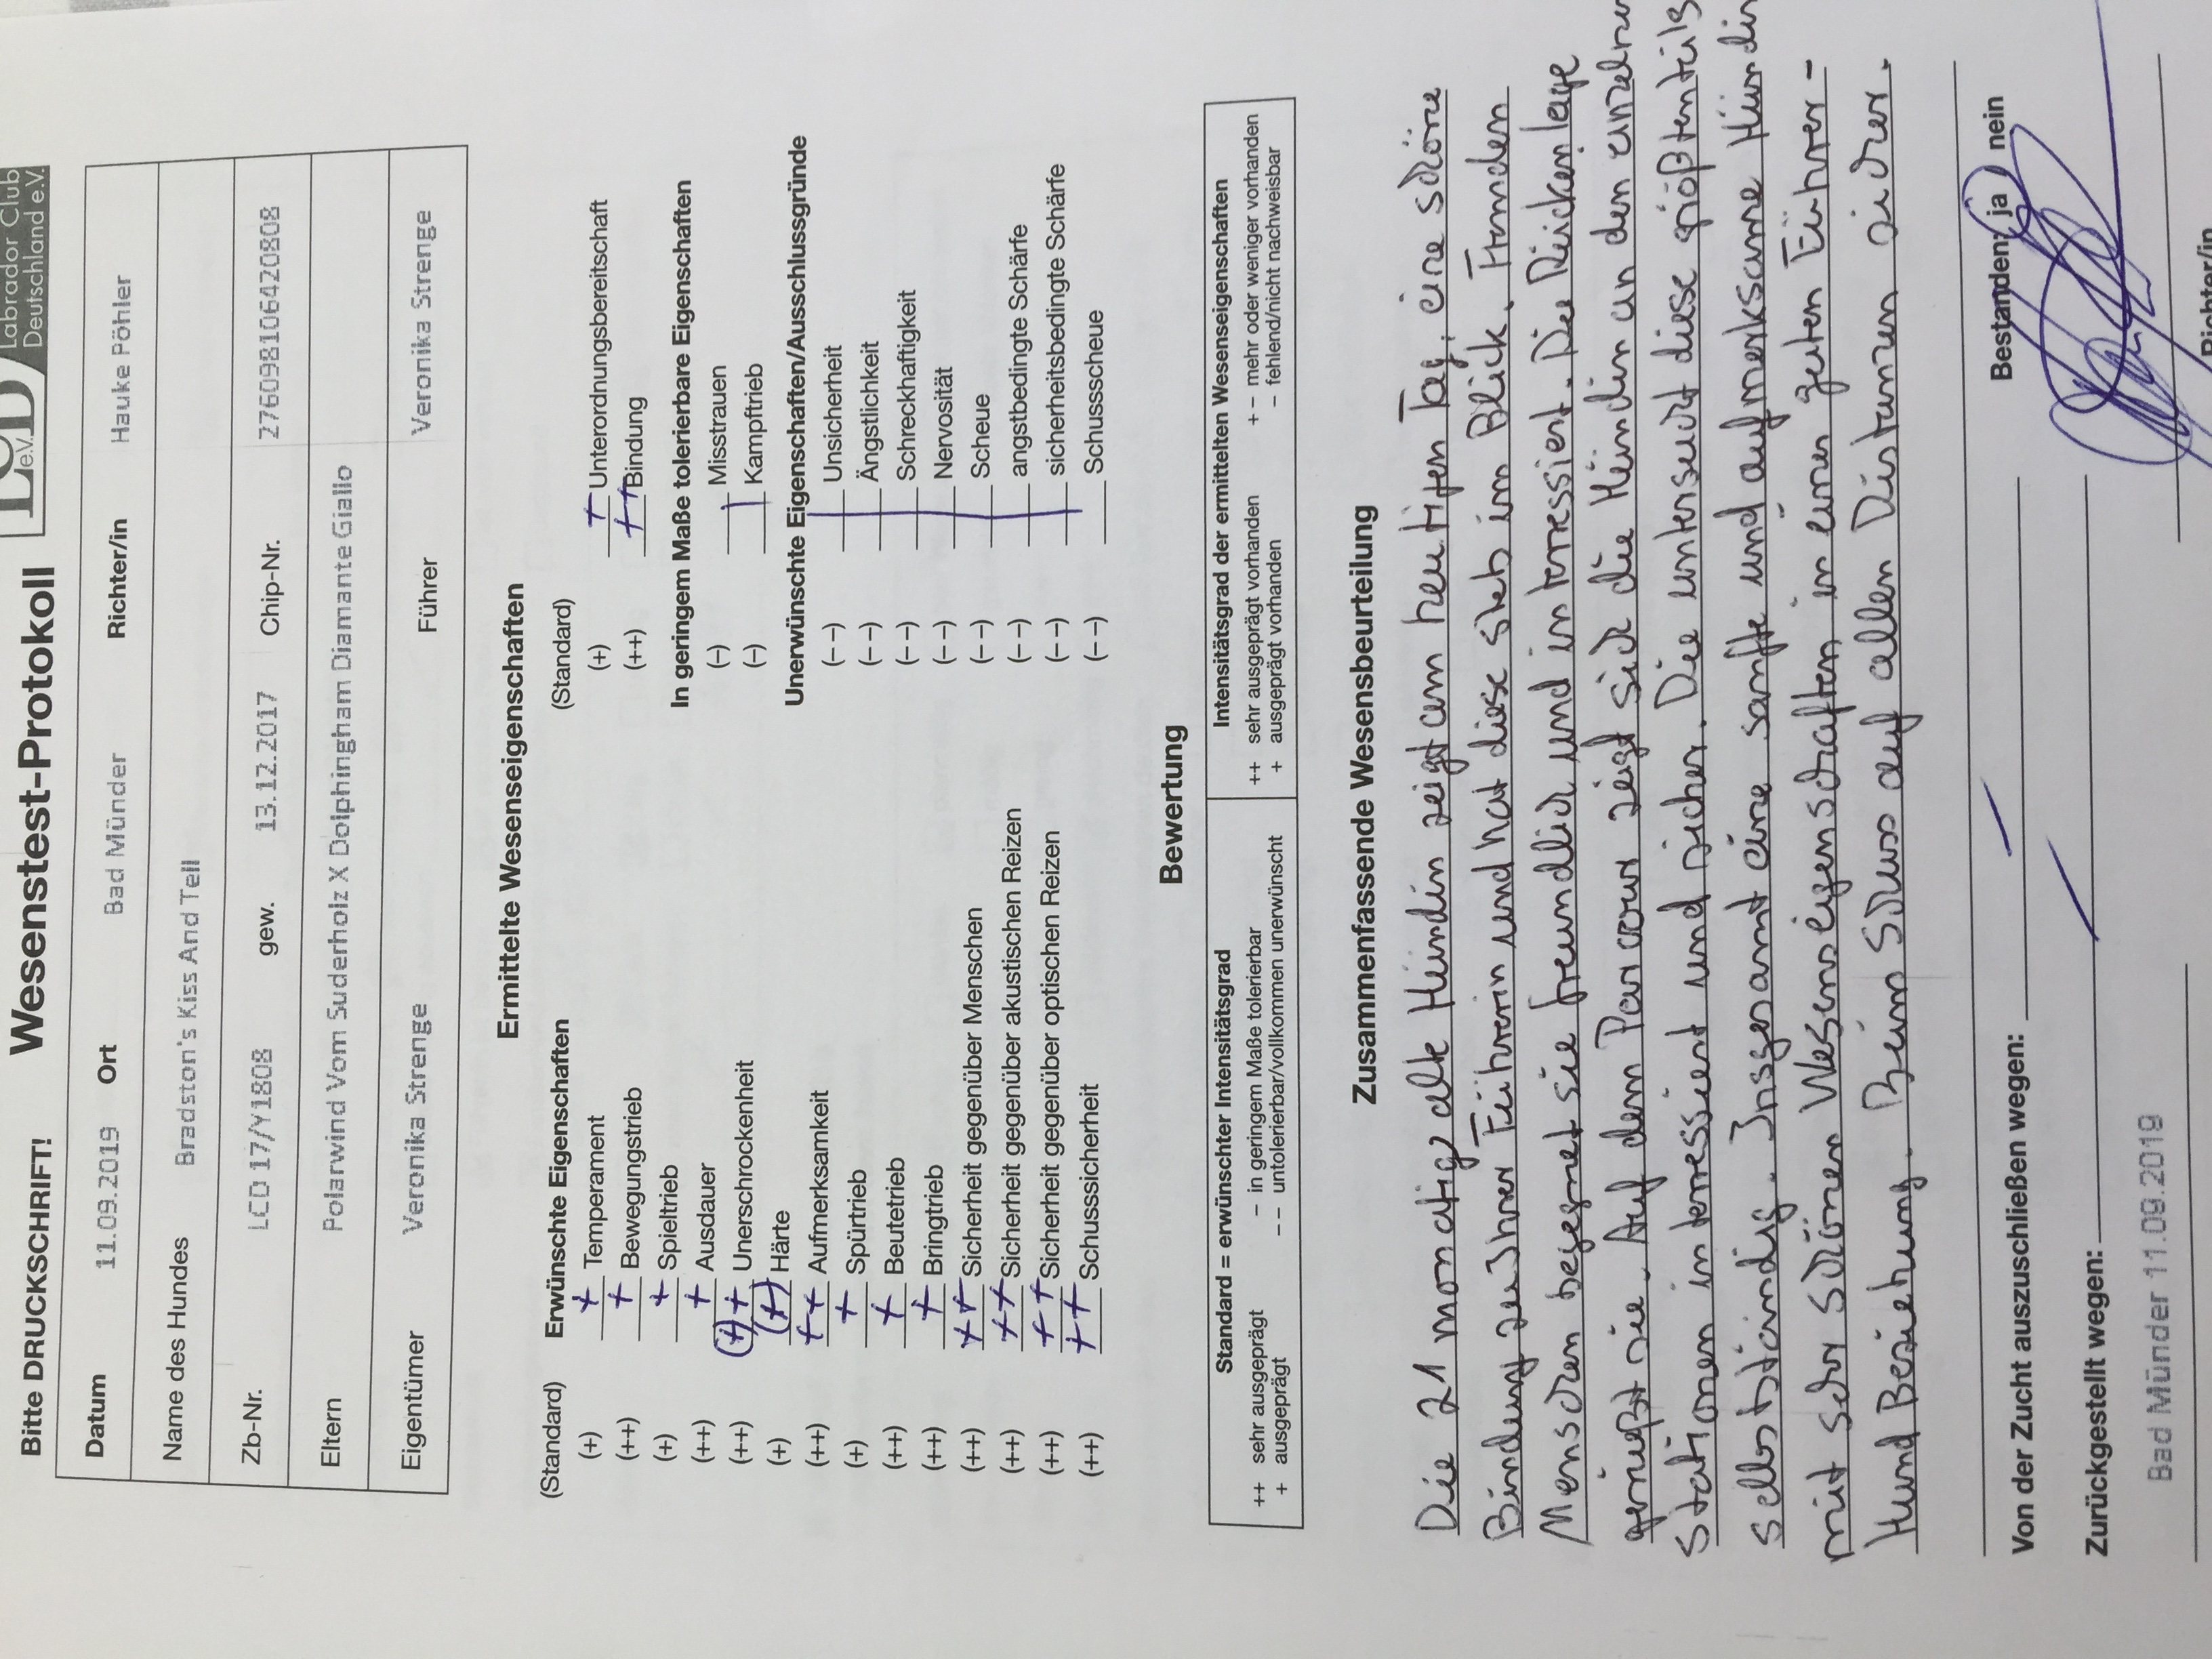 Bitte DRUCKSCHRIFT! Wesenstest-Protokoll
LCD e.V. Labrador Club
Deutschland e.V.
Datum 11.09.2019 Ort Bad Münder Richter/in Hauke Pöhler
Name des Hundes Bradston's Kiss And Tell
Zb-Nr. LCD 17/Y1808 gew. 13.12.2017 Chip-Nr. 276098106420808
Eltern Polarwind Vom Suderholz X Dolphingham Diamante Giallo
Eigentümer Veronika Strenge Führer Veronika Strenge
Ermittelte Wesenseigenschaften
(Standard) Erwünschte Eigenschaften
(+) + Temperament
(++) + Bewegungstrieb
(+) + Spieltrieb
(++) + Ausdauer
(++) (+)+ Unerschrockenheit
(+) (+) Härte
(++) ++ Aufmerksamkeit
(+) + Spürtrieb
(++) + Beutetrieb
(++) + Bringtrieb
(++) ++ Sicherheit gegenüber Menschen
(++) ++ Sicherheit gegenüber akustischen Reizen
(++) ++ Sicherheit gegenüber optischen Reizen
(++) ++ Schusssicherheit
(Standard)
(+) + Unterordnungsbereitschaft
(++) ++ Bindung
In geringem Maße tolerierbare Eigenschaften
(–) Misstrauen
(–) Kampftrieb
Unerwünschte Eigenschaften/Ausschlussgründe
(– –) Unsicherheit
(– –) Ängstlichkeit
(– –) Schreckhaftigkeit
(– –) Nervosität
(– –) Scheue
(– –) angstbedingte Schärfe
(– –) sicherheitsbedingte Schärfe
(– –) Schussscheue
Bewertung
Standard = erwünschter Intensitätsgrad
++ sehr ausgeprägt – in geringem Maße tolerierbar
+ ausgeprägt – – untolerierbar/vollkommen unerwünscht
Intensitätsgrad der ermittelten Wesenseigenschaften
++ sehr ausgeprägt vorhanden + – mehr oder weniger vorhanden
+ ausgeprägt vorhanden – fehlend/nicht nachweisbar
Zusammenfassende Wesensbeurteilung
Die 21 monatige alte Hündin zeigt am heutigen Tag, eine schöne
Bindung zu Ihrer Führerin und hat diese stets im Blick. Fremden
Menschen begegnet sie freundlich und interessiert. Die Rückenlage
genießt sie. Auf dem Parcour zeigt sich die Hündin an den
Stationen interessiert und sicher. Die untersucht diese größtenteils
selbstständig. Insgesamt eine sanfte und aufmerksame
mit sehr schönen Wesenseigenschaften in einer guten Führer-
Hund Beziehung. Beim Schuss auf allen Distanzen sicher.
Von der Zucht auszuschließen wegen: Bestanden: ja / nein
Zurückgestellt wegen:
Bad Münder 11.09.2019
Richter/in